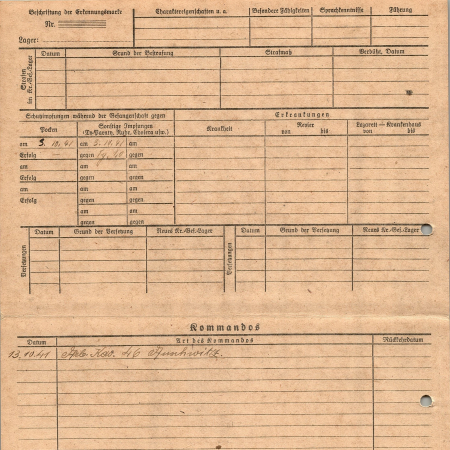 Beschriftung der Erkennungsmarke
Nr.
Lager:
Charaktereigenschaften u. a.
Besondere Fähigkeiten
Sprachkenntnisse
Führung
Strafen im Kr.-Gef.-Lager
Datum
Grund der Bestrafung
Strafmaß
Verbüßt, Datum
Schutzimpfungen während der Gefangenschaft gegen
Erkrankungen
Pocken
Sonstige Impfungen
(Ty-Paraty, Ruhr, Cholera usw.)
Krankheit
Revier
von bis
Lazarett – Krankenhaus
von bis
am 3. 10. 41 am 3. 10. 41 am
Erfolg gegen gegen
am am am
Erfolg gegen gegen
am am am
Erfolg gegen gegen
am am
gegen gegen
Versetzungen
Datum
Grund der Versetzung
Neues Kr.-Gef.-Lager
Versetzungen
Datum
Grund der Versetzung
Neues Kr.-Gef.-Lager
Kommandos
Datum
Art des Kommandos
Rückkehrdatum
13.10.41 Arb. Kdo. 46